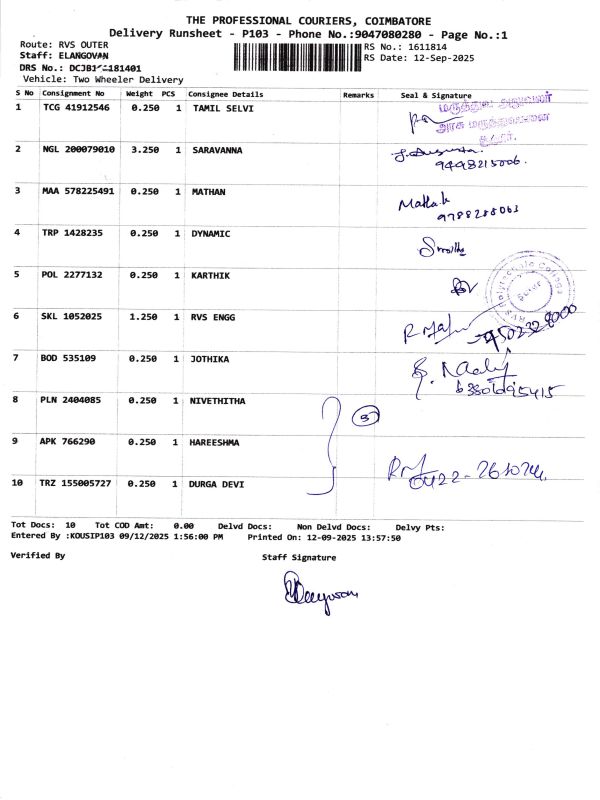 THE PROFESSIONAL COURIERS, COIMBATORE
Delivery Runsheet - P103 - Phone No.:9047080280 - Page No.:1
Route: RVS OUTER
RS No.: 1611814
Staff: ELANGOVAN
RS Date: 12-Sep-2025
DRS No.:
Vehicle: Two Wheeler Delivery
S No Consignment No Weight PCS Consignee Details Remarks Seal & Signature
1 TCG 41912546 0.250 1 TAMIL SELVI
மருத்துவ அலுவலர்
அரசு மருத்துவமனை
சூலூர்.
2 NGL 200079010 3.250 1 SARAVANNA
9498215006.
3 MAA 578225491 0.250 1 MATHAN
9788288063
4 TRP 1428235 0.250 1 DYNAMIC
5 POL 2277132 0.250 1 KARTHIK
RVS Polytechnic College
Sulur
6 SKL 1052025 1.250 1 RVS ENGG
7 BOD 535109 0.250 1 JOTHIKA
8 PLN 2404085 0.250 1 NIVETHITHA
9 APK 766290 0.250 1 HAREESHMA
10 TRZ 155005727 0.250 1 DURGA DEVI
Tot Docs: 10 Tot COD Amt: 0.00 Delvd Docs: Non Delvd Docs: Delvy Pts:
Entered By :KOUSIP103 09/12/2025 1:56:00 PM Printed On: 12-09-2025 13:57:50
Verified By Staff Signature